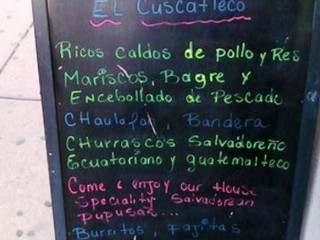 El Cuscatleco
Ricos caldos de pollo y Res
Mariscos, Bagre y
Encebollado de Pescado
Chaulafan, Bandera
Churrascos Salvadoreño
Ecuatoriano y guatemalteco
Come & enjoy our House
Speciality Salvadorean
pupusas...
Burritos, fajitas